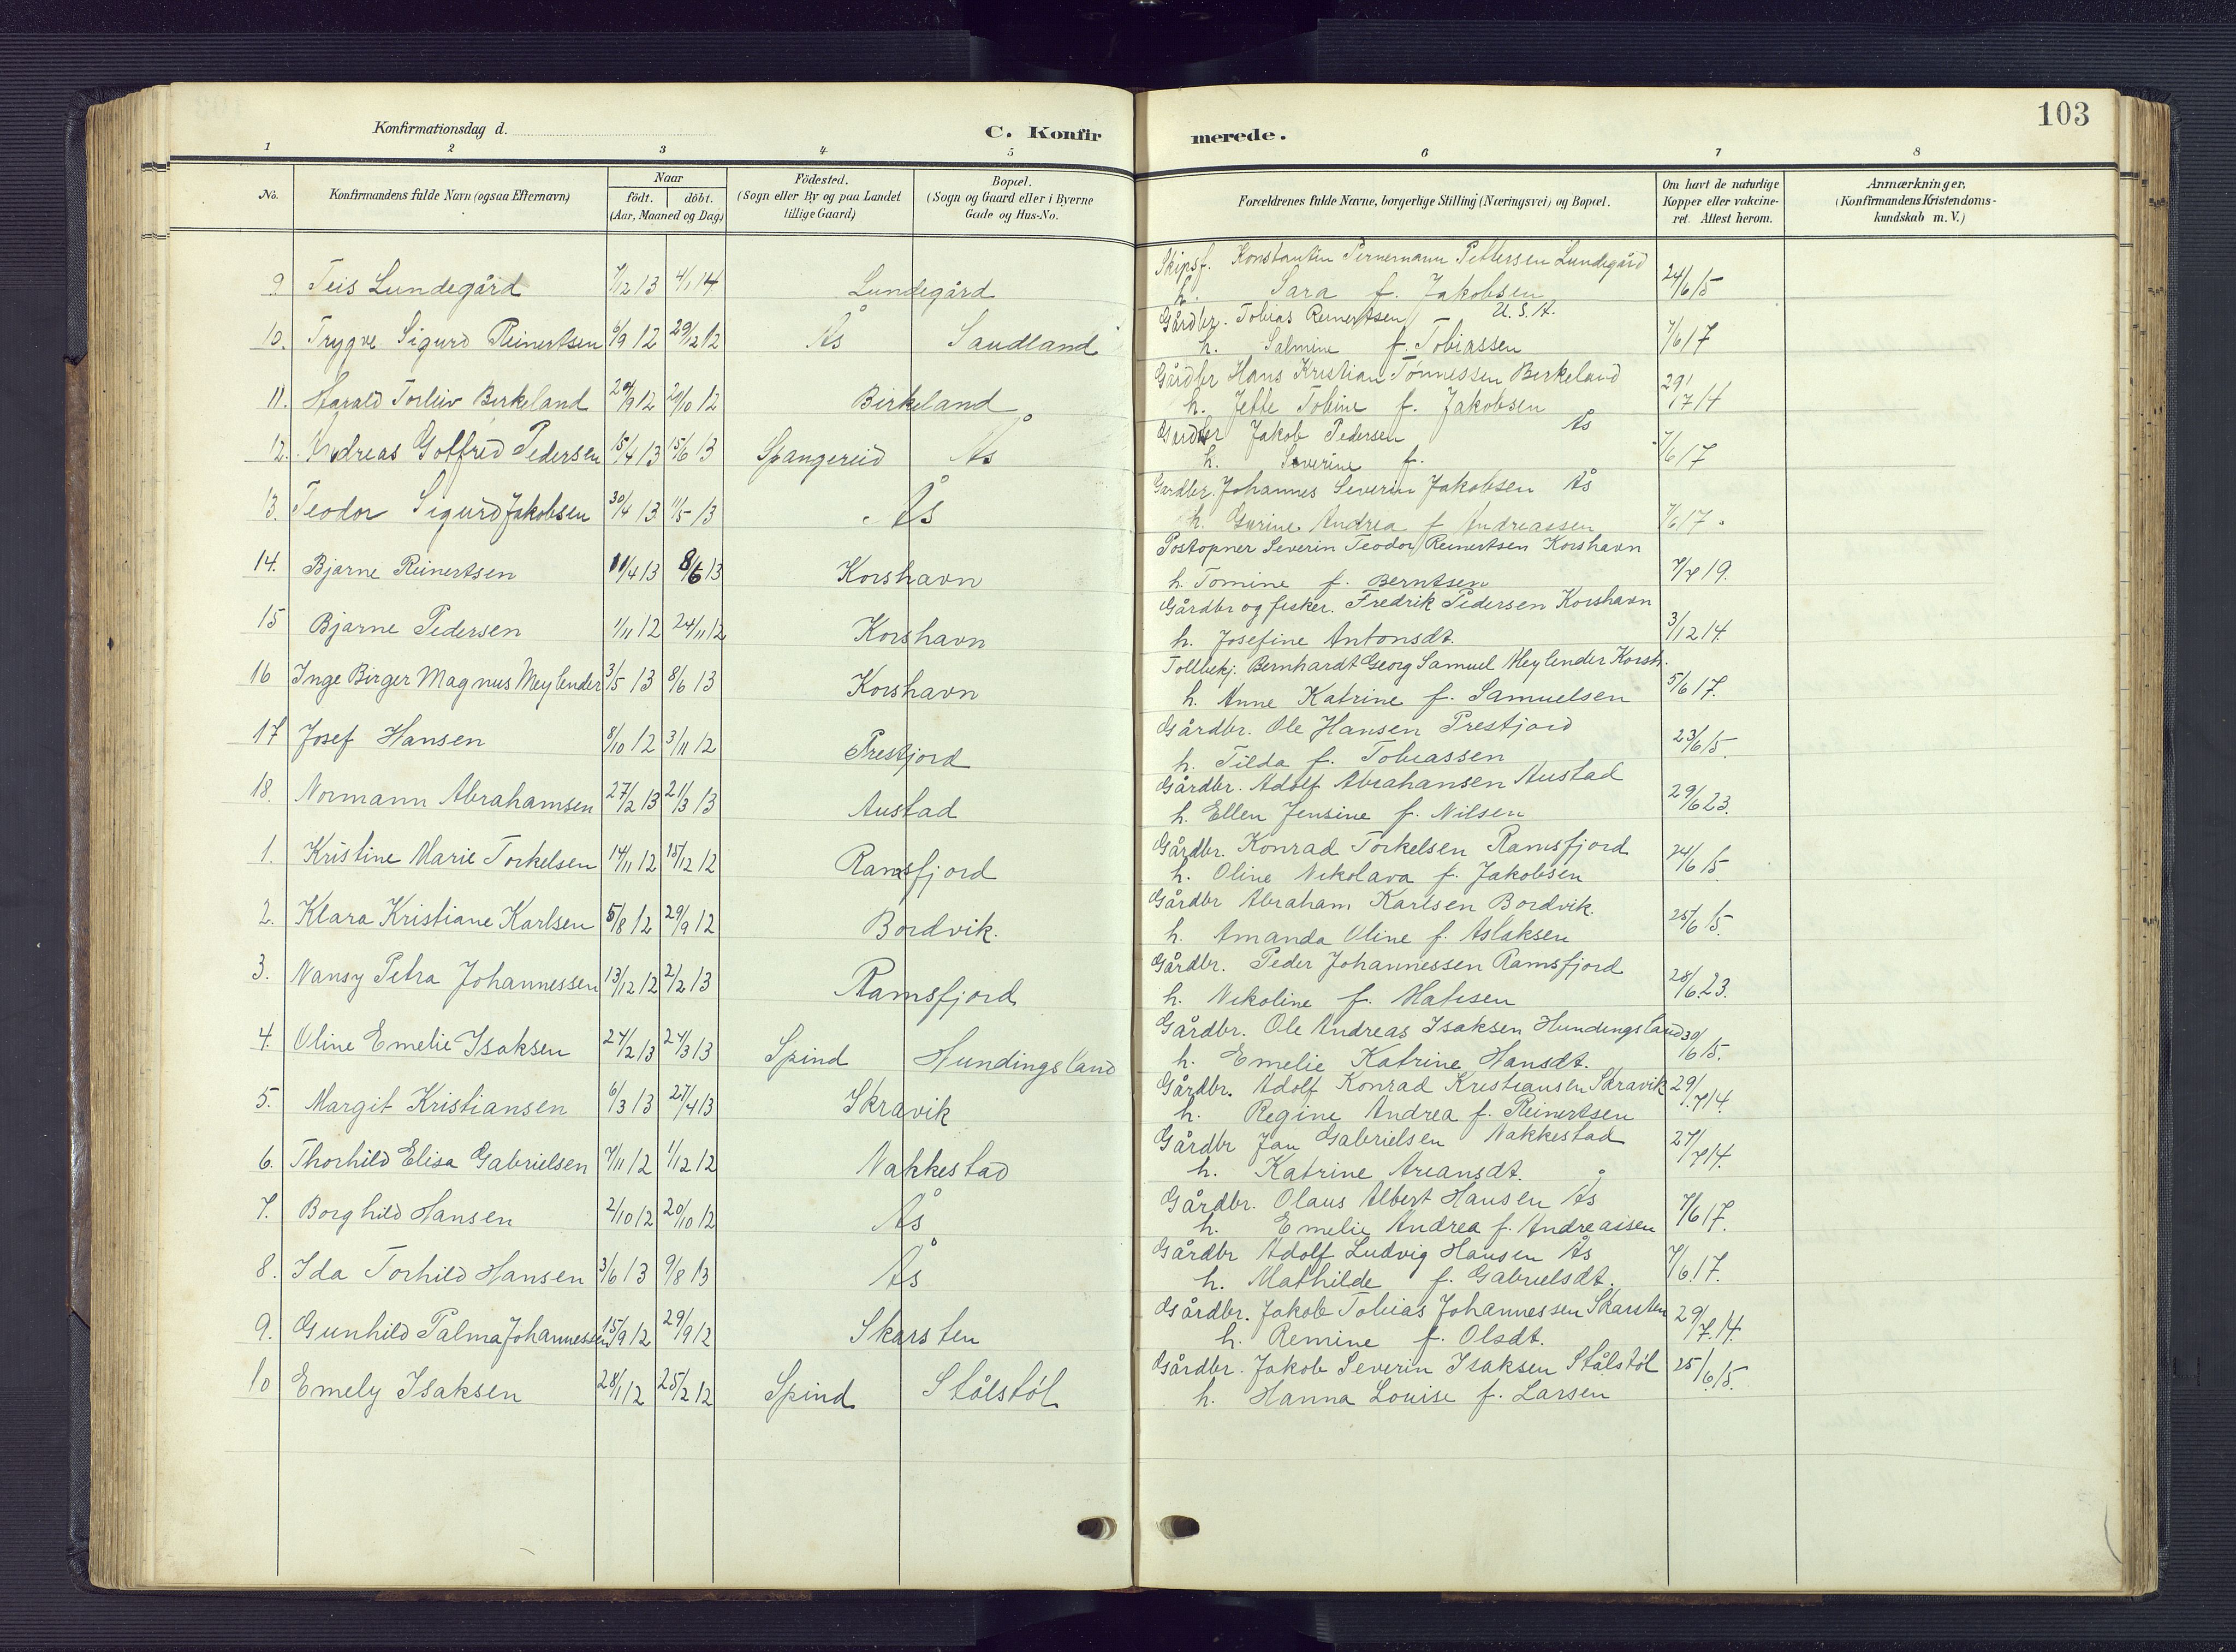 103
Konfirmationsdag d.
C. Konfirmerede.
1 2 3 4 5 6 7 8
No. Konfirmandens fulde Navn (ogsaa Efternavn) Naar født. døbt. (Aar, Maaned og Dag) Födested. (Sogn eller By og paa Landet tillige Gaard) Bopæl. (Sogn og Gaard eller i Byerne Gade og Hus-No. Forældrenes fulde Navne, borgerlige Stilling (Næringsvei) og Bopæl. Om havt de naturlige Kopper eller vakcineret. Attest herom. Anmærkninger, (Konfirmandens Kristendomskundskab m. V.)
Skipsf. Konstantin Pettersen Lundegård
9 Teis Lundegård 7/12 13 4/1 14 Lundegård h. Sara f. Jakobsen 24/6 15
Gårdbr. Tobias Reinertsen U.S.A.
10. Trygve Sigurd Reinertsen 6/9 12 29/12 12 Ås Saudland h. Salmine f. Tobiassen 7/6 17
Gårdbr Hans Kristian Tønnessen Birkeland
11. Harald Torleiv Birkeland 29/9 12 20/10 12 Birkeland h. Jette Tobine f. Jakobsen 29/7 14
Gardbr Jakob Pedersen Ås
12. Andreas Gotfred Pedersen 15/4 13 15/6 13 Spangereid Ås h. Severine f. 7/6 17
Gardbr. Johannes Severin Jakobsen Ås
13. Teodor Sigurd Jakobsen 30/4 13 11/5 13 Ås h. Gurine Andrea f Andreassen 7/6 17.
Postopner Severin Teodor Reinertsen Korshavn
14. Bjarne Reinertsen 11/4 13 8/6 13 Korshavn h. Tomine f. Berntsen 7/7 19.
Gårdbr og fisker. Fredrik Pedersen Korshavn
15 Bjarne Pedersen 1/11 12 24/11 12 Korshavn h. Josefine Antonsdt. 3/12 14.
Tollbetj. Bernhardt Georg Samuel Meylender Korsh.
16 Inge Birger Magnus Meylender 3/5 13 8/6 13 Korshavn h. Anne Katrine f. Samuelsen 5/6 17.
Gårdbr. Ole Hansen Prestjord
17 Josef Hansen 8/10 12 3/11 12 Prestjord h. Tilda f. Tobiassen 23/6 15.
Gårdbr. Adolf Abrahansen Austad
18. Normann Abrahamsen 27/2 13 21/3 13 Austad h. Ellen Jensine f. Nilsen 29/6 23.
Gårdbr. Konrad Torkelsen Ramsfjord
1. Kristine Marie Torkelsen 14/11 12 15/12 12 Ramsfjord h. Oline Nikolava f. Jakobsen 24/6 15.
Gårdbr Abraham Karlsen Bordvik.
2. Klara Kristiane Karlsen 5/8 12 29/9 12 Bordvik. h. Amanda Oline f. Aslaksen 25/6 15.
Gårdbr. Peder Johannessen Ramsfjord
3. Nansy Petra Johannessen 13/12 12 2/2 13 Ramsfjord h. Nikoline f. Matisen 28/6 23.
Gårdbr. Ole Andreas Isaksen Hundingsland
4. Oline Emelie Isaksen 24/2 13 24/3 13 Spind Hundingsland h. Emelie Katrine Hansdt. 30/6 15.
Gårdbr. Adolf Konrad Kristiansen Skravik
5. Margit Kristiansen 6/3 13 27/4 13 Skravik h. Regine Andrea f. Reinertsen 29/7 14.
Gårdbr Jan Gabrielsen Nakkestad
6. Thorhild Elisa Gabrielsen 7/11 12 1/12 12 Nakkestad h. Katrine Areansdt. 27/7 14.
Gårdbr. Olaus Albert Hansen Ås
7. Borghild Hansen 2/10 12 20/10 12 Ås h. Emelie Andrea f. Andreassen 7/6 17.
Gårdbr Adolf Ludvig Hansen Ås
8. Ida Torhild Hansen 3/6 13 9/8 13 Ås h. Mathilde f. Gabrielsdt. 7/6 17.
Gårdbr. Jakob Tobias Johannessen Skarsten
9. Gunhild Palma Johannessen 15/9 12 29/9 12 Skarsten h. Remine f. Olsdt. 29/7. 14.
Gårdbr. Jakob Severin Isaksen Stålstøl
10 Emely Isaksen 28/1 12 25/2 12 Spind Stålstøl h. Hanna Louise f. Larsen 25/6 15.